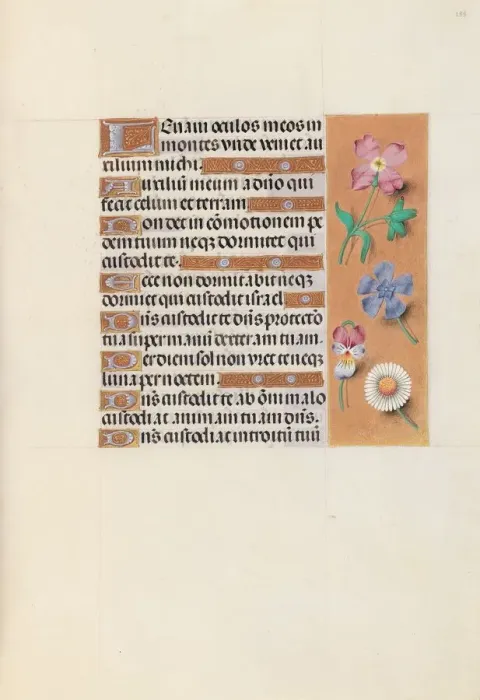 Leuaui oculos meos in
montes vnde veniet au
xilium michi.
Auxiliū meum a dn̄o qui
fecit celum et terram
Non det in cōmotionem pe
dem tuum neqz dormitet qui
custodit te.
Ecce non dormitabit neqz
dormiet qui custodit israel
Dn̄s custodit te dn̄s protectō
tua super manū dexteram tuam.
Per diem sol non vret te neqz
luna per noctem.
Dn̄s custodit te ab ōm̄ malo
custodiat animam tuam dn̄s.
Dn̄s custodiat introitū tuū